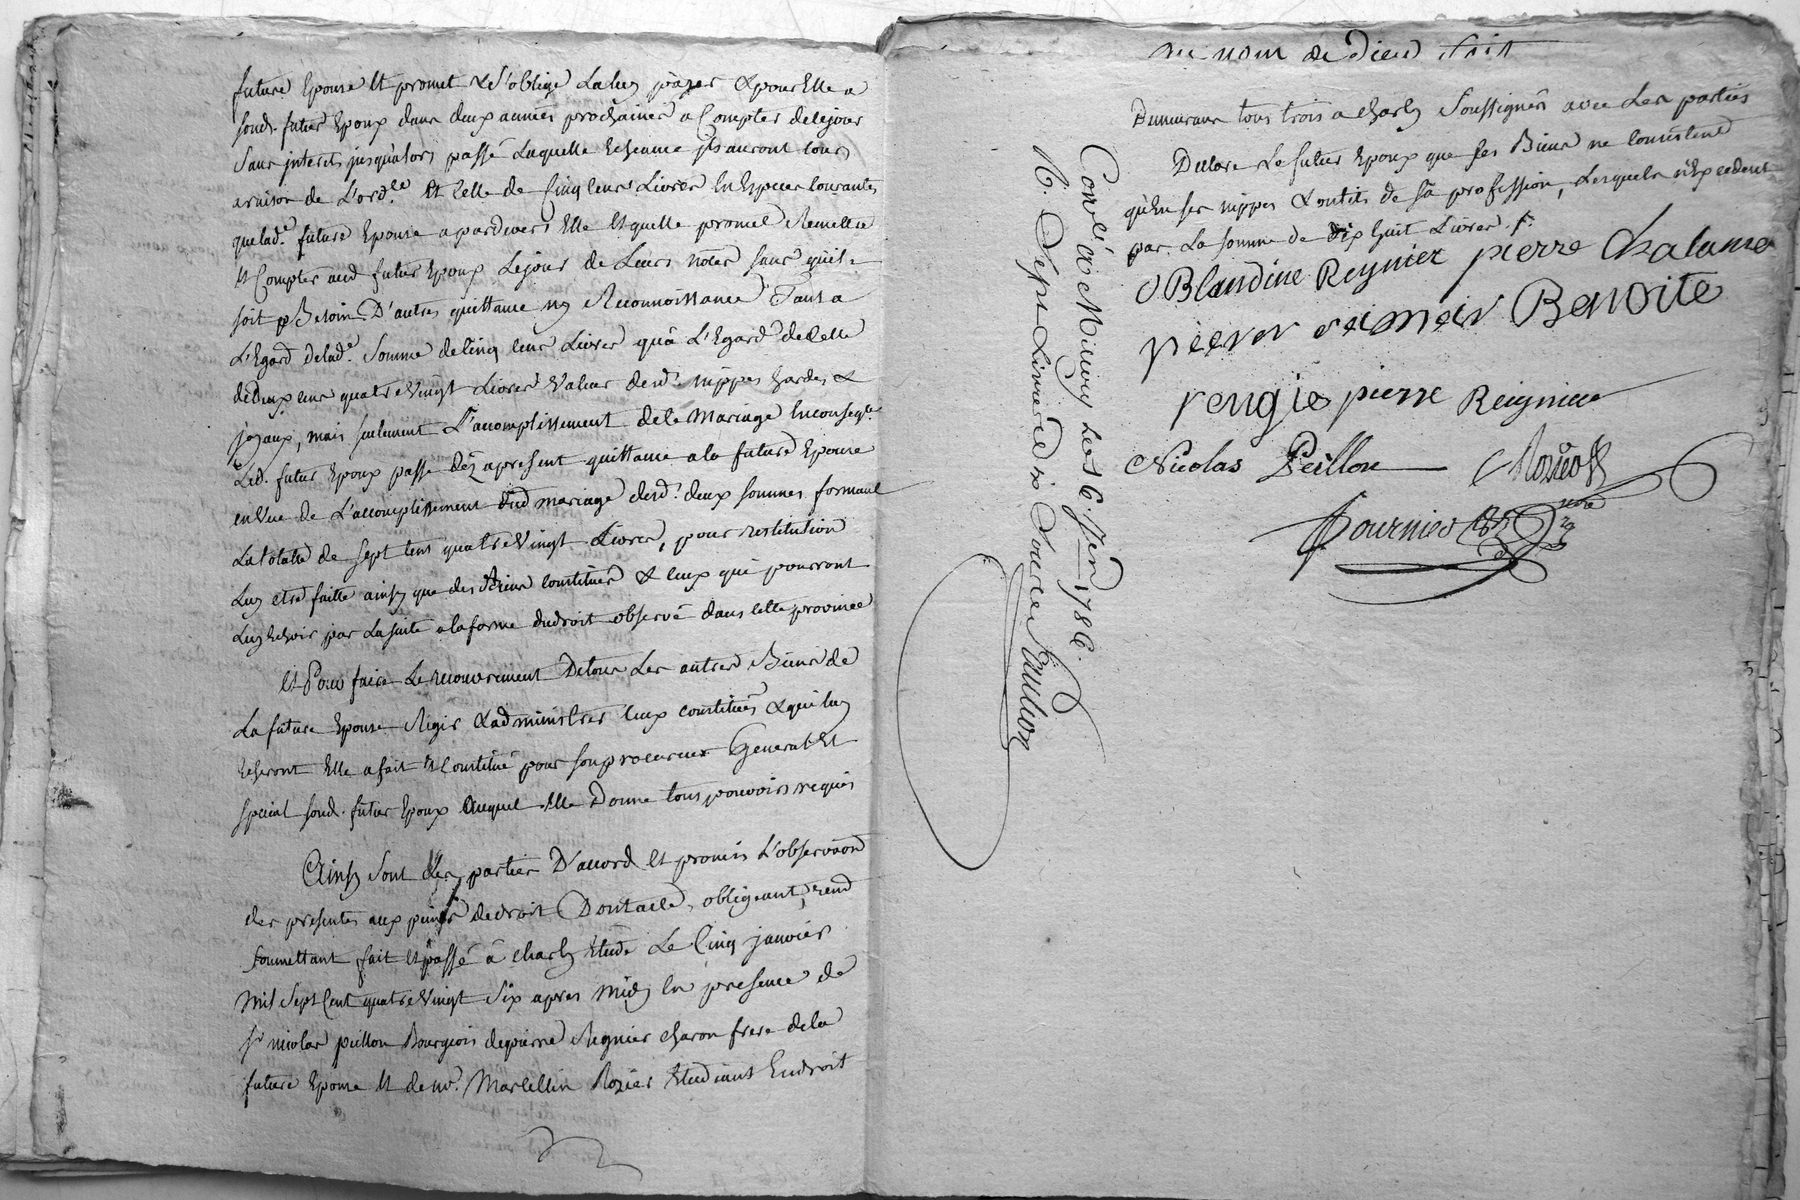 future Epouse Et promet & s'oblige La luy payer & pour Elle a
sond. futur Epoux dans deux années prochaines a Compter de ce jour
Sans interets jusqu'alors passé Laquelle Echeance ils auront cours
a raison de L'ord.ce Et Celle de Cinq cens Livres En Especes Courantes
que lad.e future Epouse a pardevers Elle Et quelle promet Remettre
Et Compter aud futur Epoux Le jour de Leurs noces sans quil
soit Besoin D'autres quittance ny Reconnoissance Tant a
L'Egard de lad.e Somme de Cinq cens Livres qu'à L'Egard de Celle
de Deux cens quatre Vingt Livres Valeur desd. nippes hardes &
joyaux, mais seulement L'accomplissement de Ce Mariage En conseq.ce
Led. futur Epoux passe dèz apresent quittance a la future Epouse
en Vue de L'accomplissement dud mariage desd. deux sommes formant
La totalle de sept cens quatre Vingt Livres, pour restitution
Luy etre faitte ainsy que des Biens constitués & ceux qui pourront
Luy Echoir par La suite a la forme du droit observé dans cette province
Et Pour faire Le recouvrement De tous Les autres Biens de
La future Epouse Régir & administrer ceux constitués & qui luy
Echeront Elle a fait Et Constitué pour son procureur General Et
special sond. futur Epoux auquel Elle Donne tous pouvoirs requis
Ainsy Sont Les parties D'accord Et promis L'observaon
des presentes aux peines de droit Dont acte, obligeant, rend
soumettant fait Et passé à Charly Etude Le Cinq janvier
Mil Sept Cent quatre Vingt Six apres Midy En presence de
Sr nicolas peillon Bourgeois de pierre Regnier charon frere de la
future Epouse Et de mr. Marcellin Rozier Etudiant En droit
au nom de Dieu soit
Demeurans tous trois a charly Soussignés avec Les parties
Declare Le futur Epoux que ses Biens ne consistent
qu'En ses nippes & outils de sa profession, Lesquels n'Excedent
par La somme de dix huit Livres
Blandine Reynier pierre Chalame
Benoite
pierre Reignier
Nicolas Peillon
Fournier
Con.lé à Millery Le 6. Jer. 1786.
R. Sept Livres Dix Sols